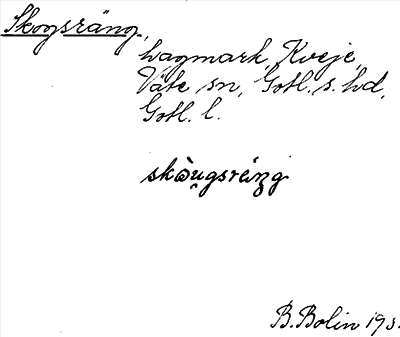 Skogsräng,
hagmark, Kveje,
Väte sn, Gotl. s. hd,
Gotl. l.
skòu̯gsräŋg
B. Bolin 193